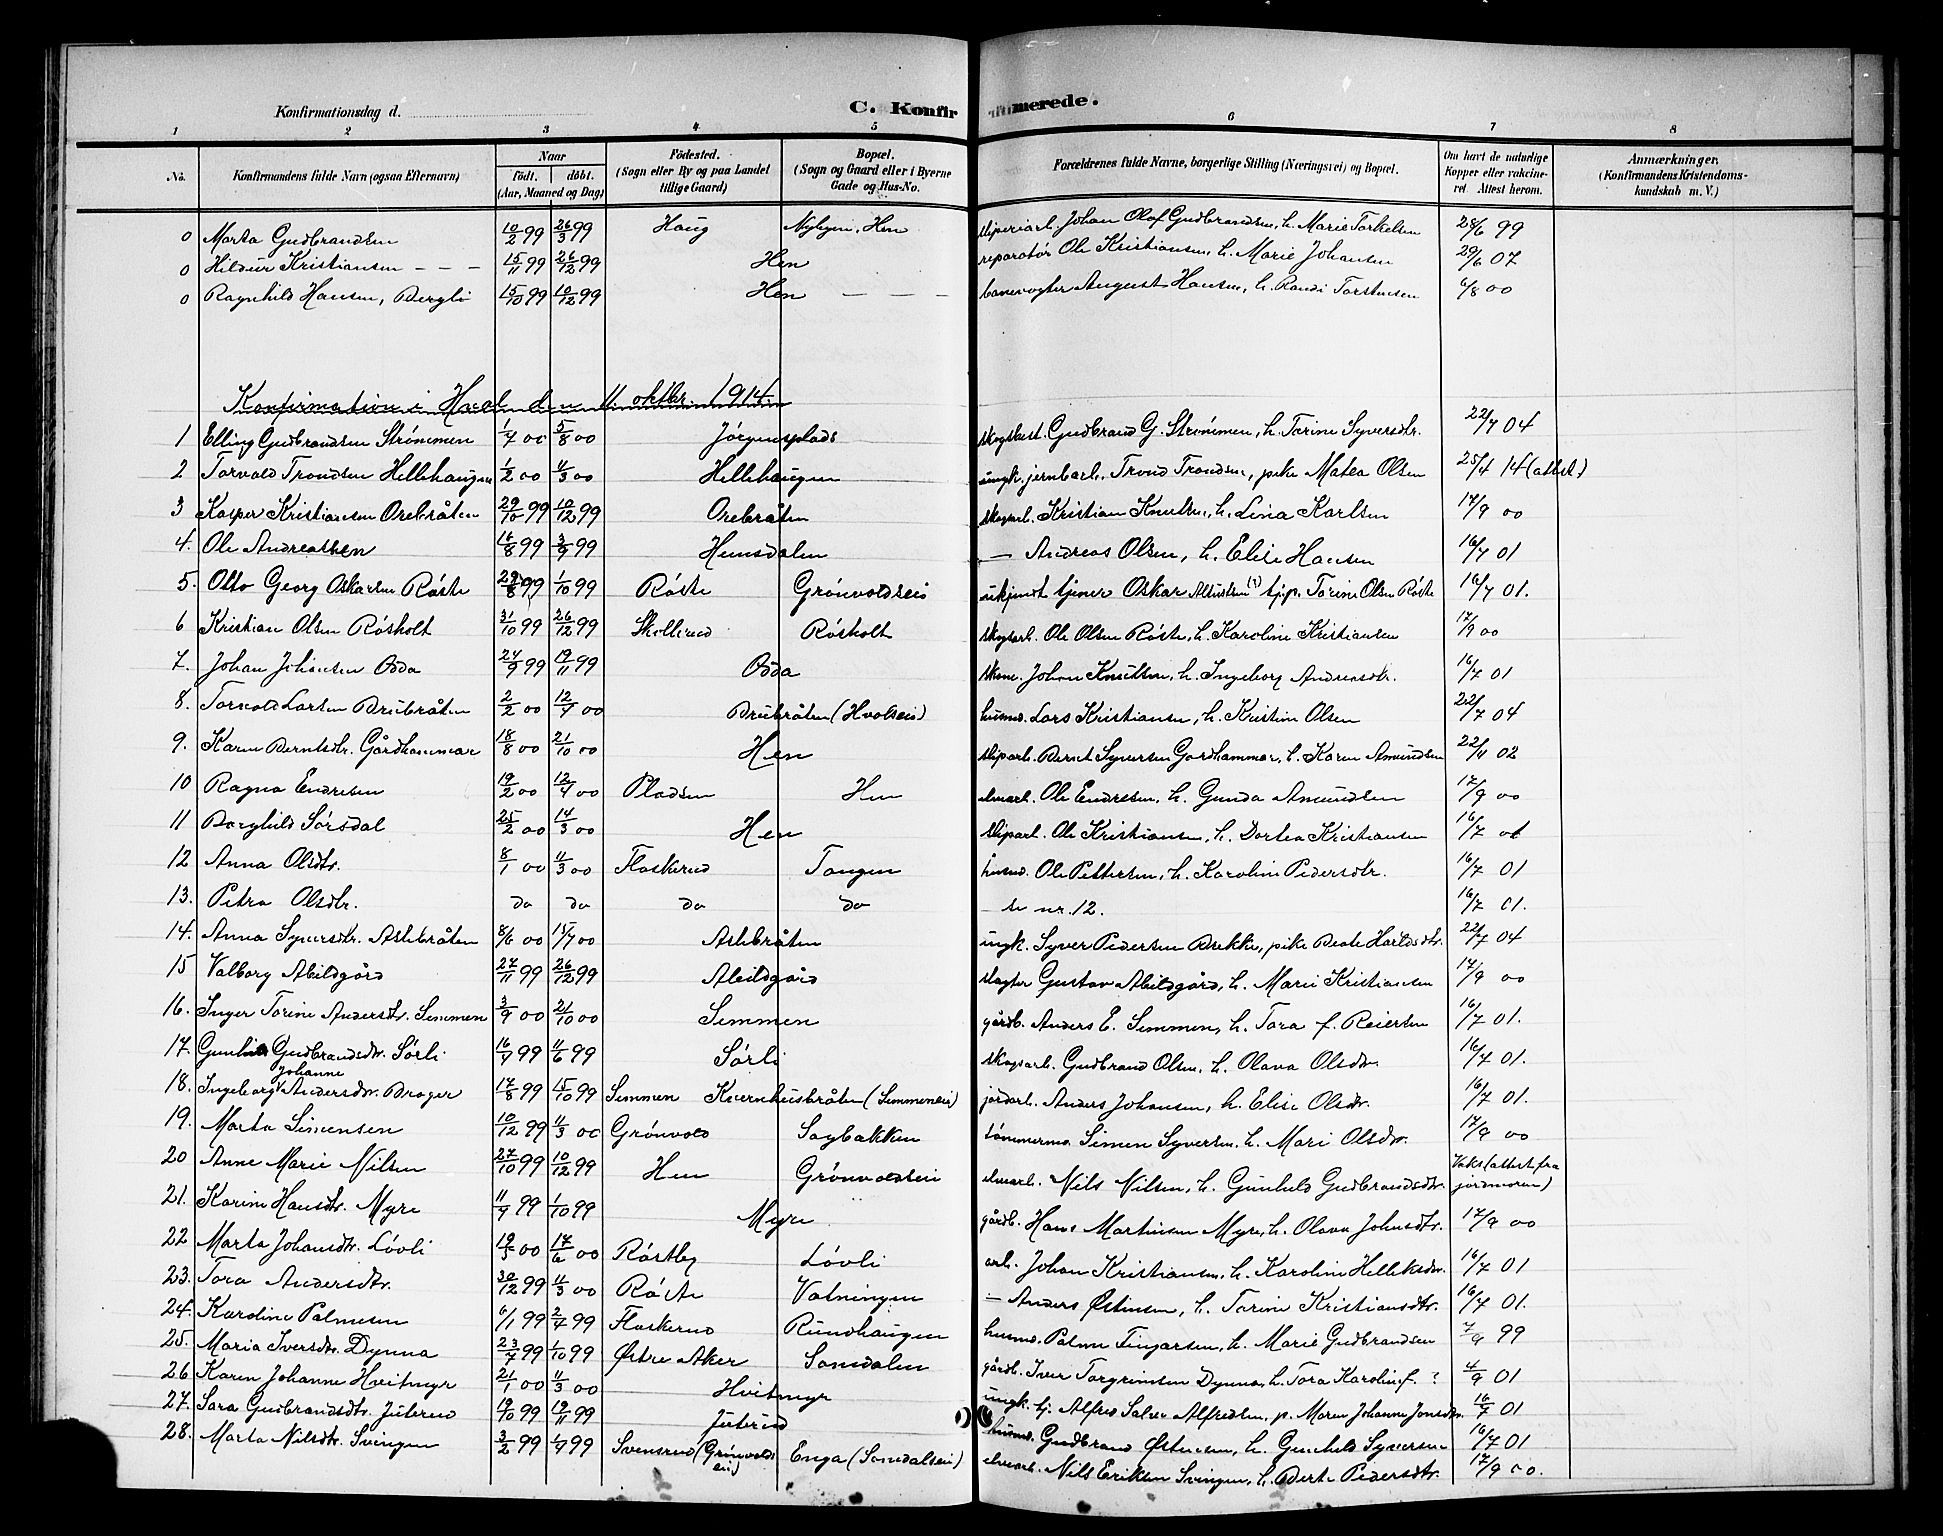 Konfirmationsdag d.
C. Konfirmerede.
1 2 3 4 5 6 7 8
No. Konfirmandens fulde Navn (ogsaa Efternavn) Naar født. døbt. (Aar, Maaned og Dag) Fødested. (Sogn eller By og paa Landet tillige Gaard) Bopæl. (Sogn og Gaard eller i Byerne Gade og Hus-No. Forældrenes fulde Navne, borgerlige Stilling (Næringsvei) og Bopæl. Om havt de naturlige Kopper eller vakcineret. Attest herom. Anmærkninger. (Konfirmandens Kristendomskundskab m. V.)
0 Marta Gudbrandsen 10/2 99 26/3 99 Haug Hen sliperiarb. Johan Olaf Gudbrandsen, h. Marie Torkelsen 28/6 99
0 Hildur Kristiansen - - - 15/11 99 26/12 99 Hen reparatør Ole Kristiansen, h. Marie Johansen 29/6 07
0 Ragnhild Hansen, Bergli 15/10 99 10/12 99 Hen - - - banevogter August Hansen, h. Randi Torstensen 6/8 00
Konfirmation i Hval den 11 oktbr. 1914
1 Elling Gudbrandsen Strømmen 1/7 00 5/8 00 Jörgensplads skogsbest. Gudbrand G. Strømmen, h. Torine Syversdtr. 22/7 04
2 Torvald Trondsen Hellehaugen 1/2 00 11/3 00 Hellehaugen ungk. jernbarb. Trond Trondsen, pike Matea Olsen 25/4 14 (attst.)
3 Kasper Kristiansen Orebråten 29/10 99 10/12 99 Orebråten skogsarb. Kristian Knutsen, h. Lina Karlsen 17/9 00
4. Ole Andreassen 16/8 99 3/9 99 Hemsdalen — Andreas Olsen, h. Elise Hansen 16/7 01
5. Otto Georg Oskarsen Röste 29/8 99 1/10 99 Röste Grönvoldseie ukjendt tjener Oskar (?) tjp. Torine Olsen Röste 16/7 01.
6 Kristian Olsen Rösholt 31/10 99 26/12 99 Skollerud Rösholt skogsarb. Ole Olsen Röste, h. Karoline Kristiansen 17/9 00
7. Johan Johansen Odda 24/9 99 19/11 99 Odda skom. Johan Knutsen, h. Ingeborg Andreasdtr. 16/7 01
8. Torvald Larsen Brubråten 2/2 00 12/4 00 Brubråten (Hvalseie) husmd. Lars Kristiansen, h. Kristine Olsen 22/7 04
9. Karen Berntsdtr. Gårdhammar 18/8 00 21/10 00 Hen sliparb. Bernt Syversen Gardhammar, h. Karen Amundsen 22/11 02
10 Ragna Endresen 19/2 00 12/4 00 Pladsen Hen elvearb. Ole Endresen, h. Gunda Amundsen 17/9 00
11 Borghild Sörsdal 25/2 00 14/3 00 Hen sliparb. Ole Kristiansen, h. Dortea Kristiansen 16/7 01
12 Anna Olsdtr. 8/1 00 11/3 00 Flaskerud Tangen husmd. Ole Pettersen, h. Karoline Pedersdtr. 16/7 01
13. Petra Olsdtr. do do do do — se nr. 12. 16/7 01.
14. Anna Syversdtr. Askebråten 8/6 00 15/7 00 Askebråten ungk. Syver Pedersen Brekke, pike Beate Haraldsdtr. 22/7 04
15 Valborg Abildgård 27/11 99 26/12 99 Abildgård slagter Gustav Abildgård, h. Marie Kristiansen 17/9 00
16. Inger Torine Andersdtr. Semmen 3/9 00 21/10 00 Semmen gårdb. Anders E. Semmen, h. Tora f. Reiersen 16/7 01.
17. Gunhild Gudbrandsdtr. Sörli 16/4 99 11/6 99 Sörli skogsarb. Gudbrand Olsen, h. Olava Olsdtr. 16/7 01.
18. Ingeborg Johanne Andersdtr. Brager 17/8 99 15/10 99 Semmen Kvernhusbråten (Semmeneie) jordarb. Anders Johansen, h. Elise Olsdtr. 16/7 01.
19. Marta Simensen 10/12 99 11/3 00 Grönvold Sagbakken tømmermd. Simen Syversen, h. Mari Olsdtr. 17/9 00
20 Anne Marie Nilsen 27/10 99 10/12 99 Hen Grönvoldseie elvearb. Nils Nilsen, h. Gunhild Gudbrandsdtr. Vaks (attest fra jordmoren)
21. Karine Hansdtr. Myre 11/9 99 1/10 99 Myre gårdb. Hans Martinsen Myre, h. Olava Johnsdtr. 17/9 00
22 Marta Johansdtr. Lövli 19/3 00 17/6 00 Röstby Lövli arb. Johan Kristiansen, h. Karoline Helliksdtr. 16/7 01
23. Tora Andersdtr. 30/12 99 11/3 00 Röste Vatningen — Anders Østensen, h. Torine Kristiansdtr. 16/7 01.
24. Karoline Palmesen 6/1 99 2/4 99 Flaskerud Rundhaugen husmd. Palme Fingarsen, h. Marie Gudbrandsen 7/9 99
25. Maria Iversdtr. Dynna 23/7 99 1/10 99 Østre Aker Somdalen gårdb. Iver Torgrimsen Dynna, h. Tora Karoline f. ? 4/9 01
26 Karen Johanne Hvitmyr 21/1 00 11/3 00 Hvitmyr ungk. tj. Alfred Salve Alfredsen, p. Maren Johanne Jonsdtr. 16/7 01
27. Sara Gudbrandsdtr. Juterud 19/10 99 19/11 99 Juterud husmd. Gudbrand Østensen, h. Gunhild Syversen 16/7 01
28. Marta Nilsdtr. Svingen 3/2 99 1/4 99 Svensrud (Grönvoldseie) Enga (Somdalseie) elvearb. Nils Eriksen Svingen, h. Berte Pedersdtr. 17/9 00.